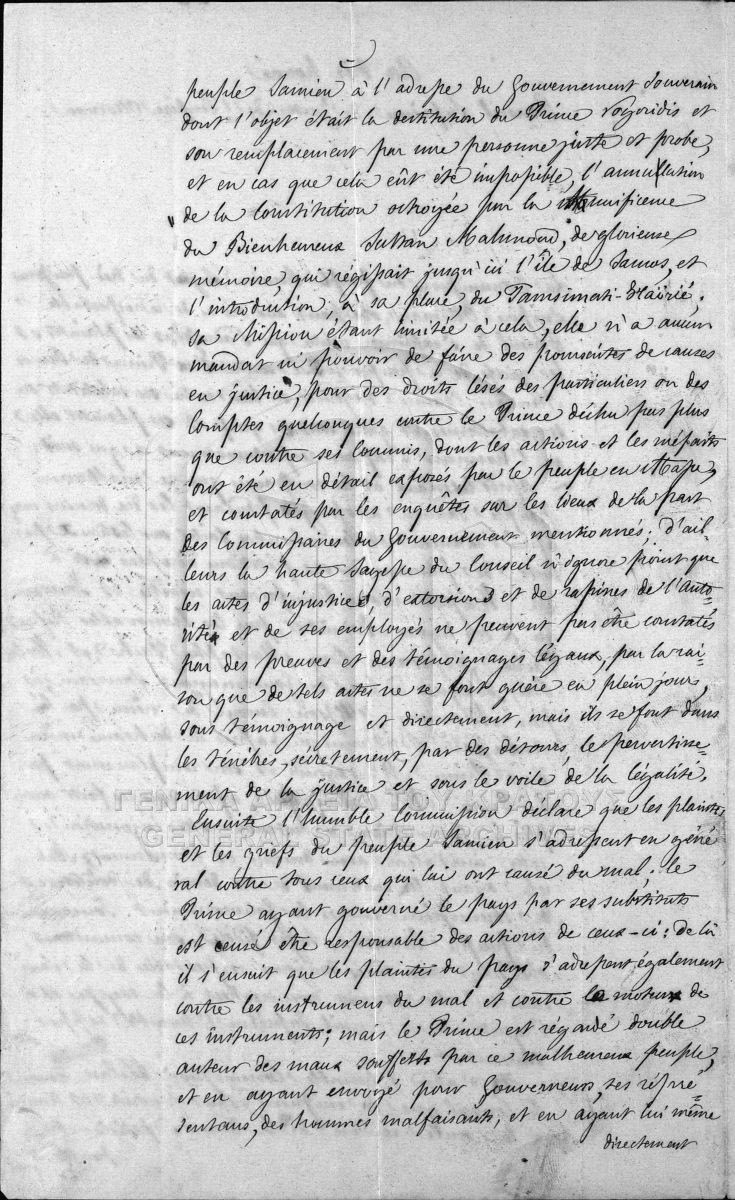 peuple Samien à l'adresse du Gouvernement Souverain
dont l'objet était la destitution du Prince Vogoridis et
son remplacement par une personne juste et probe,
et en cas que cela eût été impossible, l'annullation
de la Constitution octroyée par la Munificence
du Bienheureux Sultan Mahmoud, de glorieuse
mémoire, qui régissait jusqu'ici l'île de Samos, et
l'introduction, à sa place, du Tanzimati-Haïrié;
sa Mission étant limitée à cela, elle n'a aucun
mandat ni pouvoir de faire des poursuites de causes
en justice, pour des droits lésés des particuliers ou des
Comptes quelconques contre le Prince déchu pas plus
que contre ses Commis, dont les actions et les méfaits
ont été en détail exposés par le peuple en Masse,
et constatés par les enquêtes sur les lieux de la part
des Commissaires du Gouvernement mentionnés; d'ail-
leurs la haute Sagesse du Conseil n'ignore point que
les actes d'injustice, d'extorsion et de rapines de l'Auto-
rité et de ses employés ne peuvent pas être constatés
par des preuves et des témoignages légaux, par la rai-
son que de tels actes ne se font guère en plein jours,
sous témoignage et directement, mais ils se font dans
les ténébres, sécretement, par des détours, le pervertisse-
ment de la justice et sous le voile de la légalité.
Ensuite l'humble Commission déclare que les plaintes
et les griefs du peuple Samien s'adressent en géné
ral contre tous ceux qui lui ont causé du mal; le
Prince ayant gouverné le pays par ses substituts
est censé être responsable des actions de ceux-ci: de là
il s'ensuit que les plaintes du pays s'adressent également
contre les instrumens du mal et contre le moteur de
ces instruments; mais le Prince est régardé double
auteur des maux soufferts par ce malheureux peuple,
et en ayant envoyé pour Gouverneurs, ses réprré
sentans, des hommes malfaisants, et en ayant lui même
directement
ΓΕΝΙΚΑ ΑΡΧΕΙΑ ΤΟΥ ΚΡΑΤΟΥΣ
GENERAL STATE ARCHIVES